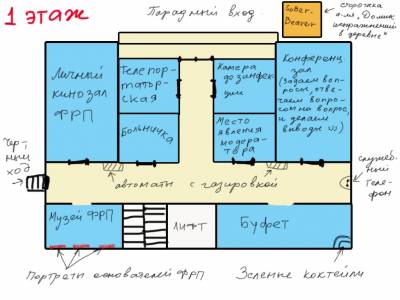 1 этаж
Парадный вход
Sober-
Beaver
сторочка
а-ля „Домик
в деревне"
Личный
кинозал
ФРП
Телепор-
таторь-
ская
Больничка
Камера
дезинфек-
ции
Место
явления
модера-
тора
Конференц.
зал
(Задаем воп-
росы, отве-
чаем вопро-
сом на вопрос,
и делаем
выводы )))
Чёр-
ный
ход
автоматы с газировкой
служеб-
ный
теле-
фон
Музей ФРП
ЛИФТ
Буфет
Портреты основателей ФРП
Зеленые коктейли